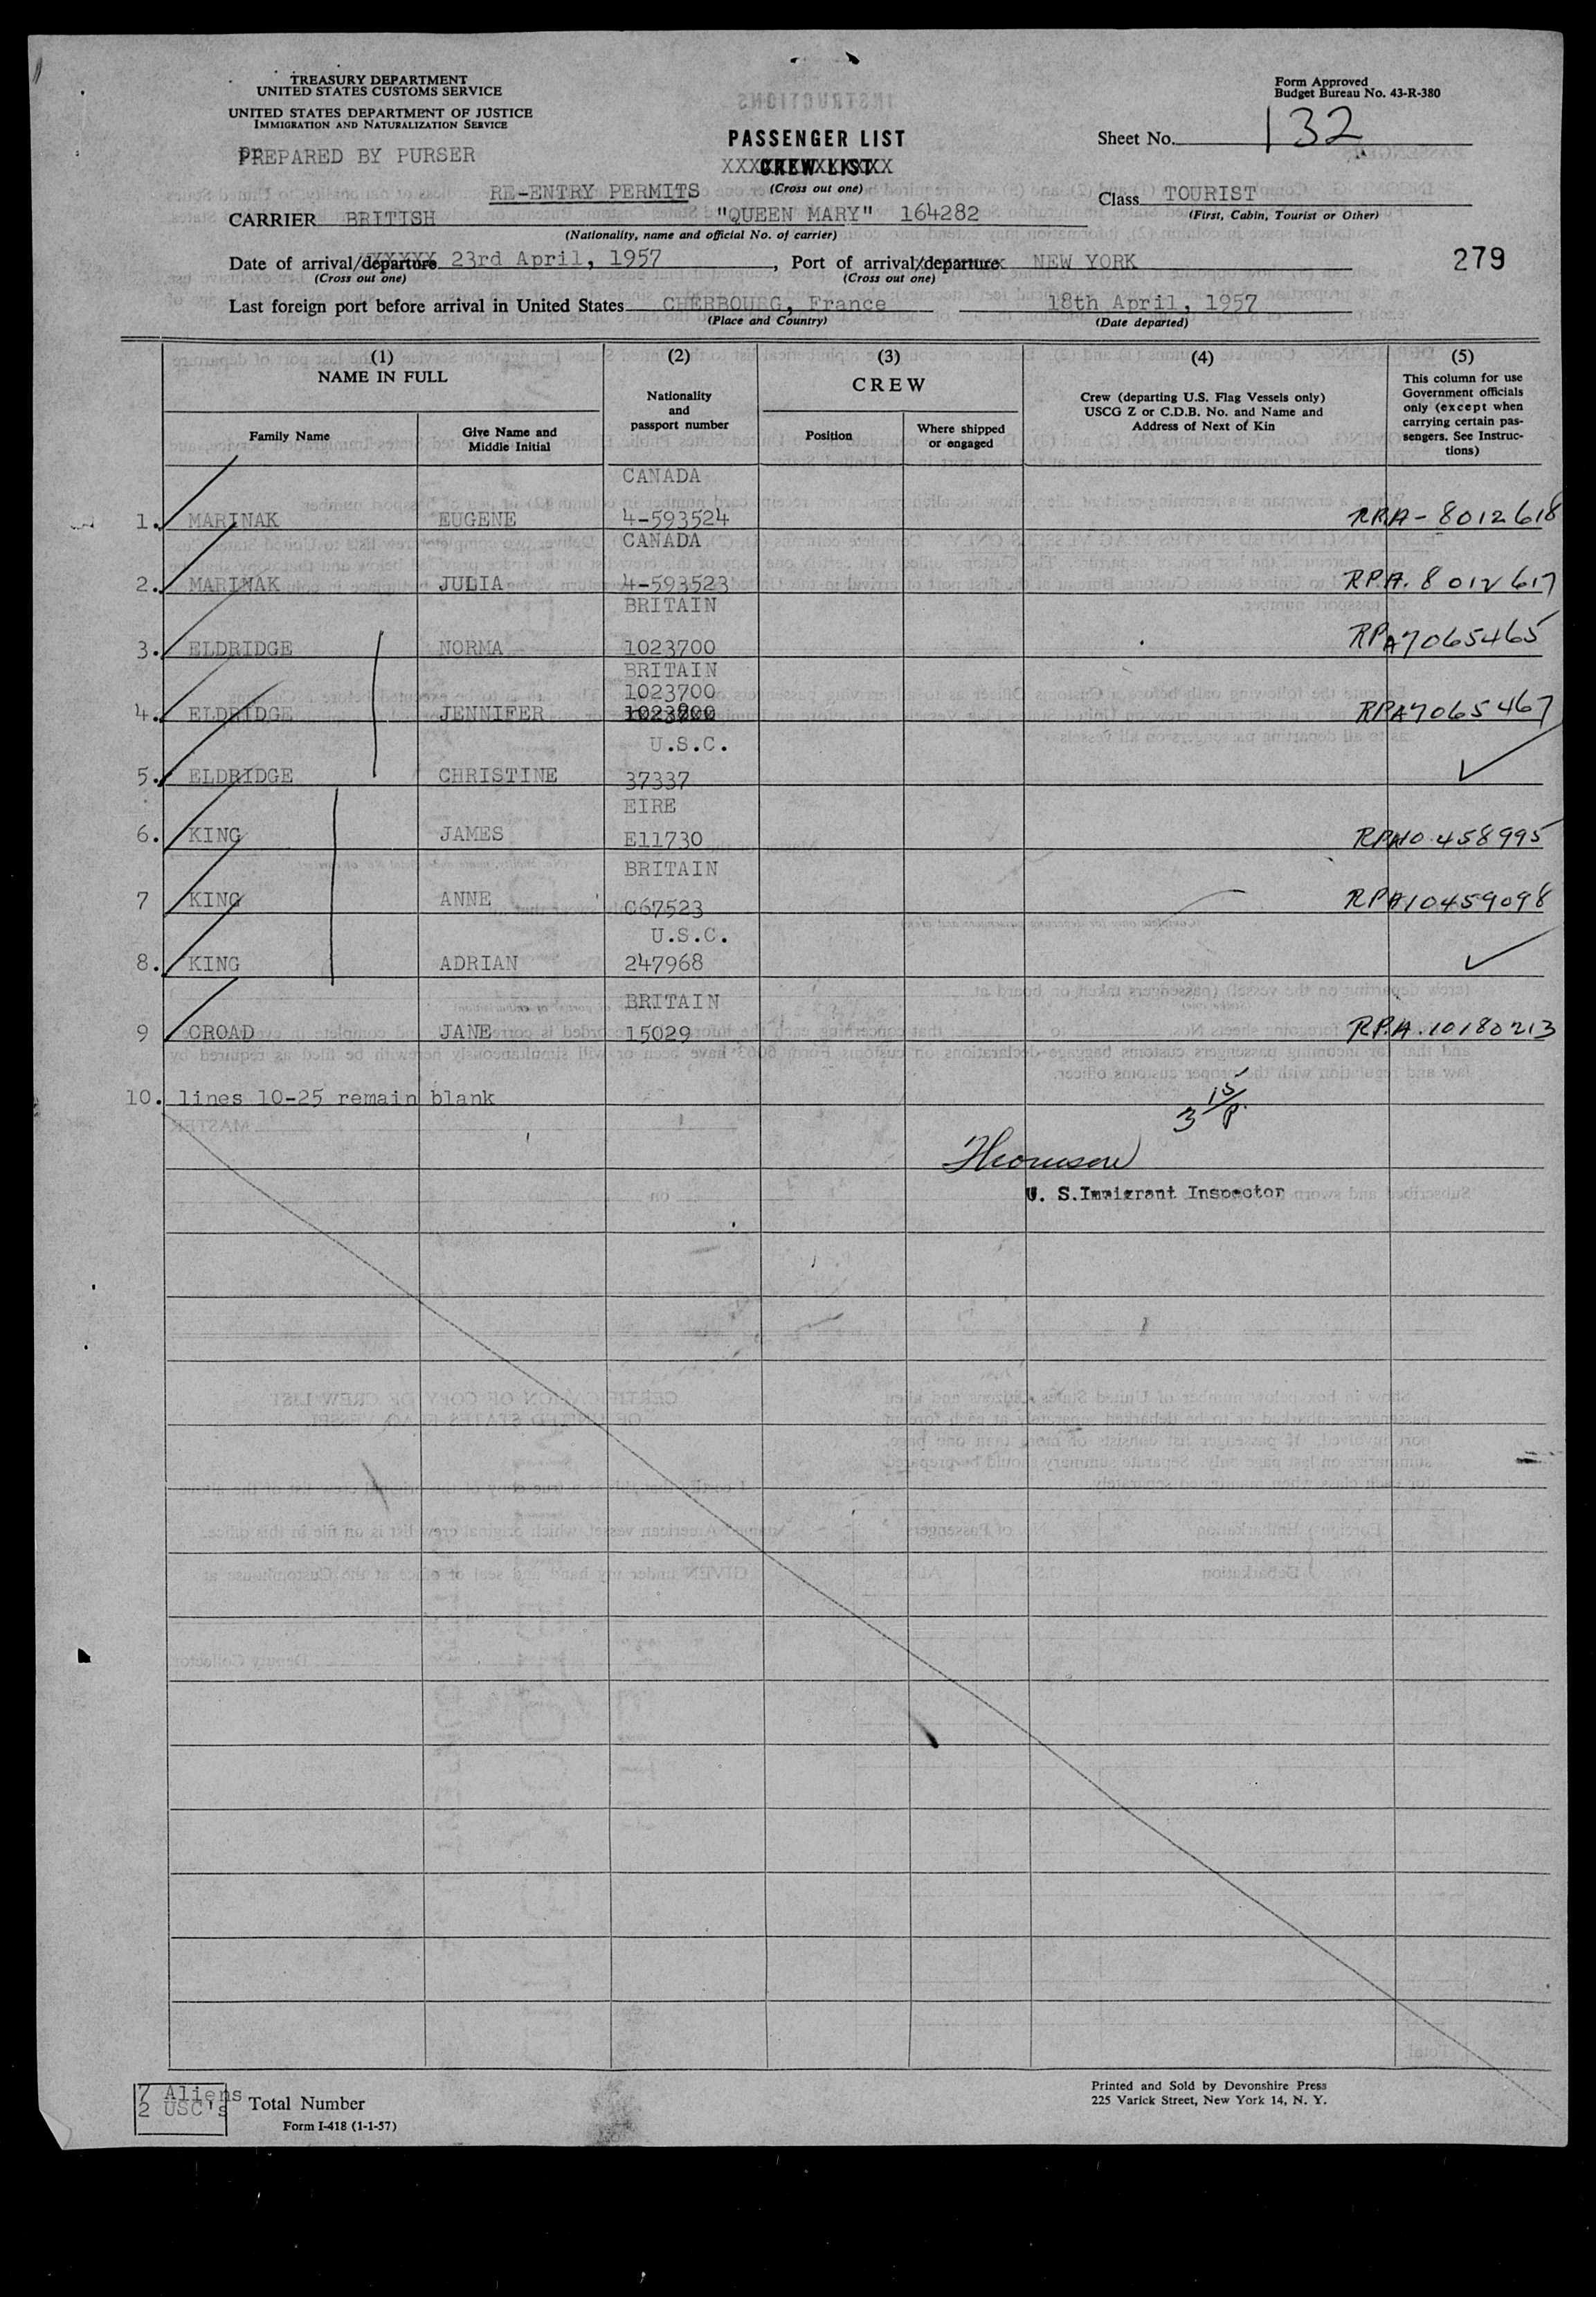 TREASURY DEPARTMENT
UNITED STATES CUSTOMS SERVICE
UNITED STATES DEPARTMENT OF JUSTICE
IMMIGRATION AND NATURALIZATION SERVICE
PREPARED BY PURSER
Form Approved
Budget Bureau No. 43-R-380
PASSENGER LIST
CREW LIST
(Cross out one)
Sheet No. 132
RE-ENTRY PERMITS
Class TOURIST
(First, Cabin, Tourist or Other)
CARRIER BRITISH "QUEEN MARY" 164282
(Nationality, name and official No. of carrier)
Date of arrival/departure 23rd April, 1957, Port of arrival/departure NEW YORK
(Cross out one) (Cross out one)
279
Last foreign port before arrival in United States CHERBOURG, France 18th April, 1957
(Place and Country) (Date departed)
(1) NAME IN FULL
Family Name
Give Name and Middle Initial
(2)
Nationality and passport number
(3)
CREW
Position
Where shipped or engaged
(4)
Crew (departing U.S. Flag Vessels only)
USCG Z or C.D.B. No. and Name and
Address of Next of Kin
(5)
This column for use
Government officials
only (except when
carrying certain pas-
sengers. See Instruc-
tions)
CANADA
1. MARINAK EUGENE 4-593524 RPA-8012618
CANADA
2. MARINAK JULIA 4-593523 RPA. 8012617
BRITAIN
3. ELDRIDGE NORMA 1023700 RPA7065465
BRITAIN
1023700
4. ELDRIDGE JENNIFER RPA7065467
U.S.C.
5. ELDRIDGE CHRISTINE 37337
EIRE
6. KING JAMES E11730 RPA10.458995
BRITAIN
7 KING ANNE C67523 RPA10459098
U.S.C.
8. KING ADRIAN 247968
BRITAIN
9 CROAD JANE 15029 RPA.10180213
10. lines 10-25 remain blank
3 15/P.
Thomson
U. S. Immigrant Inspector
7 Aliens
2 USC's
Total Number
Form I-418 (1-1-57)
Printed and Sold by Devonshire Press
225 Varick Street, New York 14, N. Y.